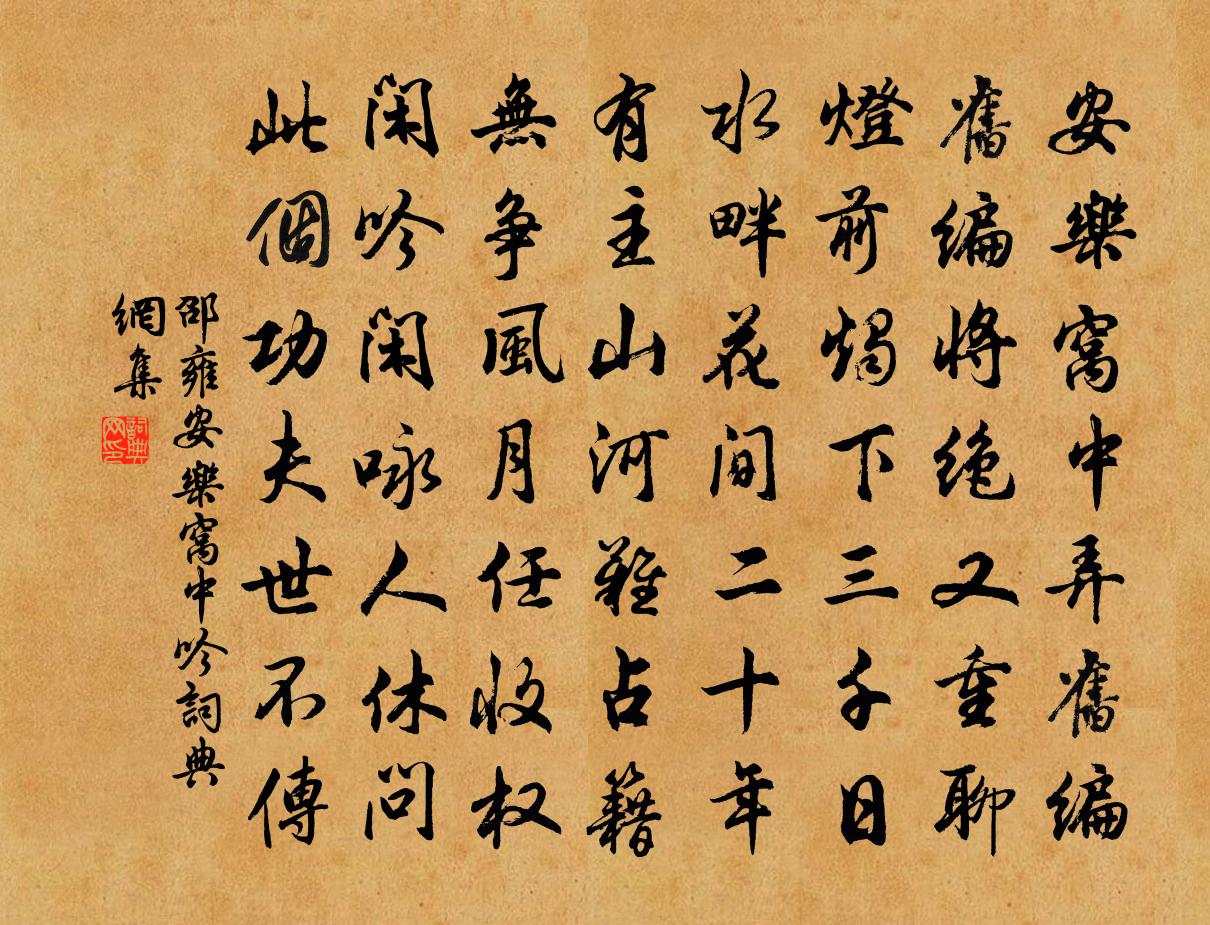 安樂窩中弄舊編
舊編將絕又重聊
燈前燭下三千日
水畔花間二十年
有主山河難占籍
無爭風月任收权
閑吟閑咏人休問
此個功夫世不傳
邵雍安樂窩中吟詞典
網集
詞典
网印